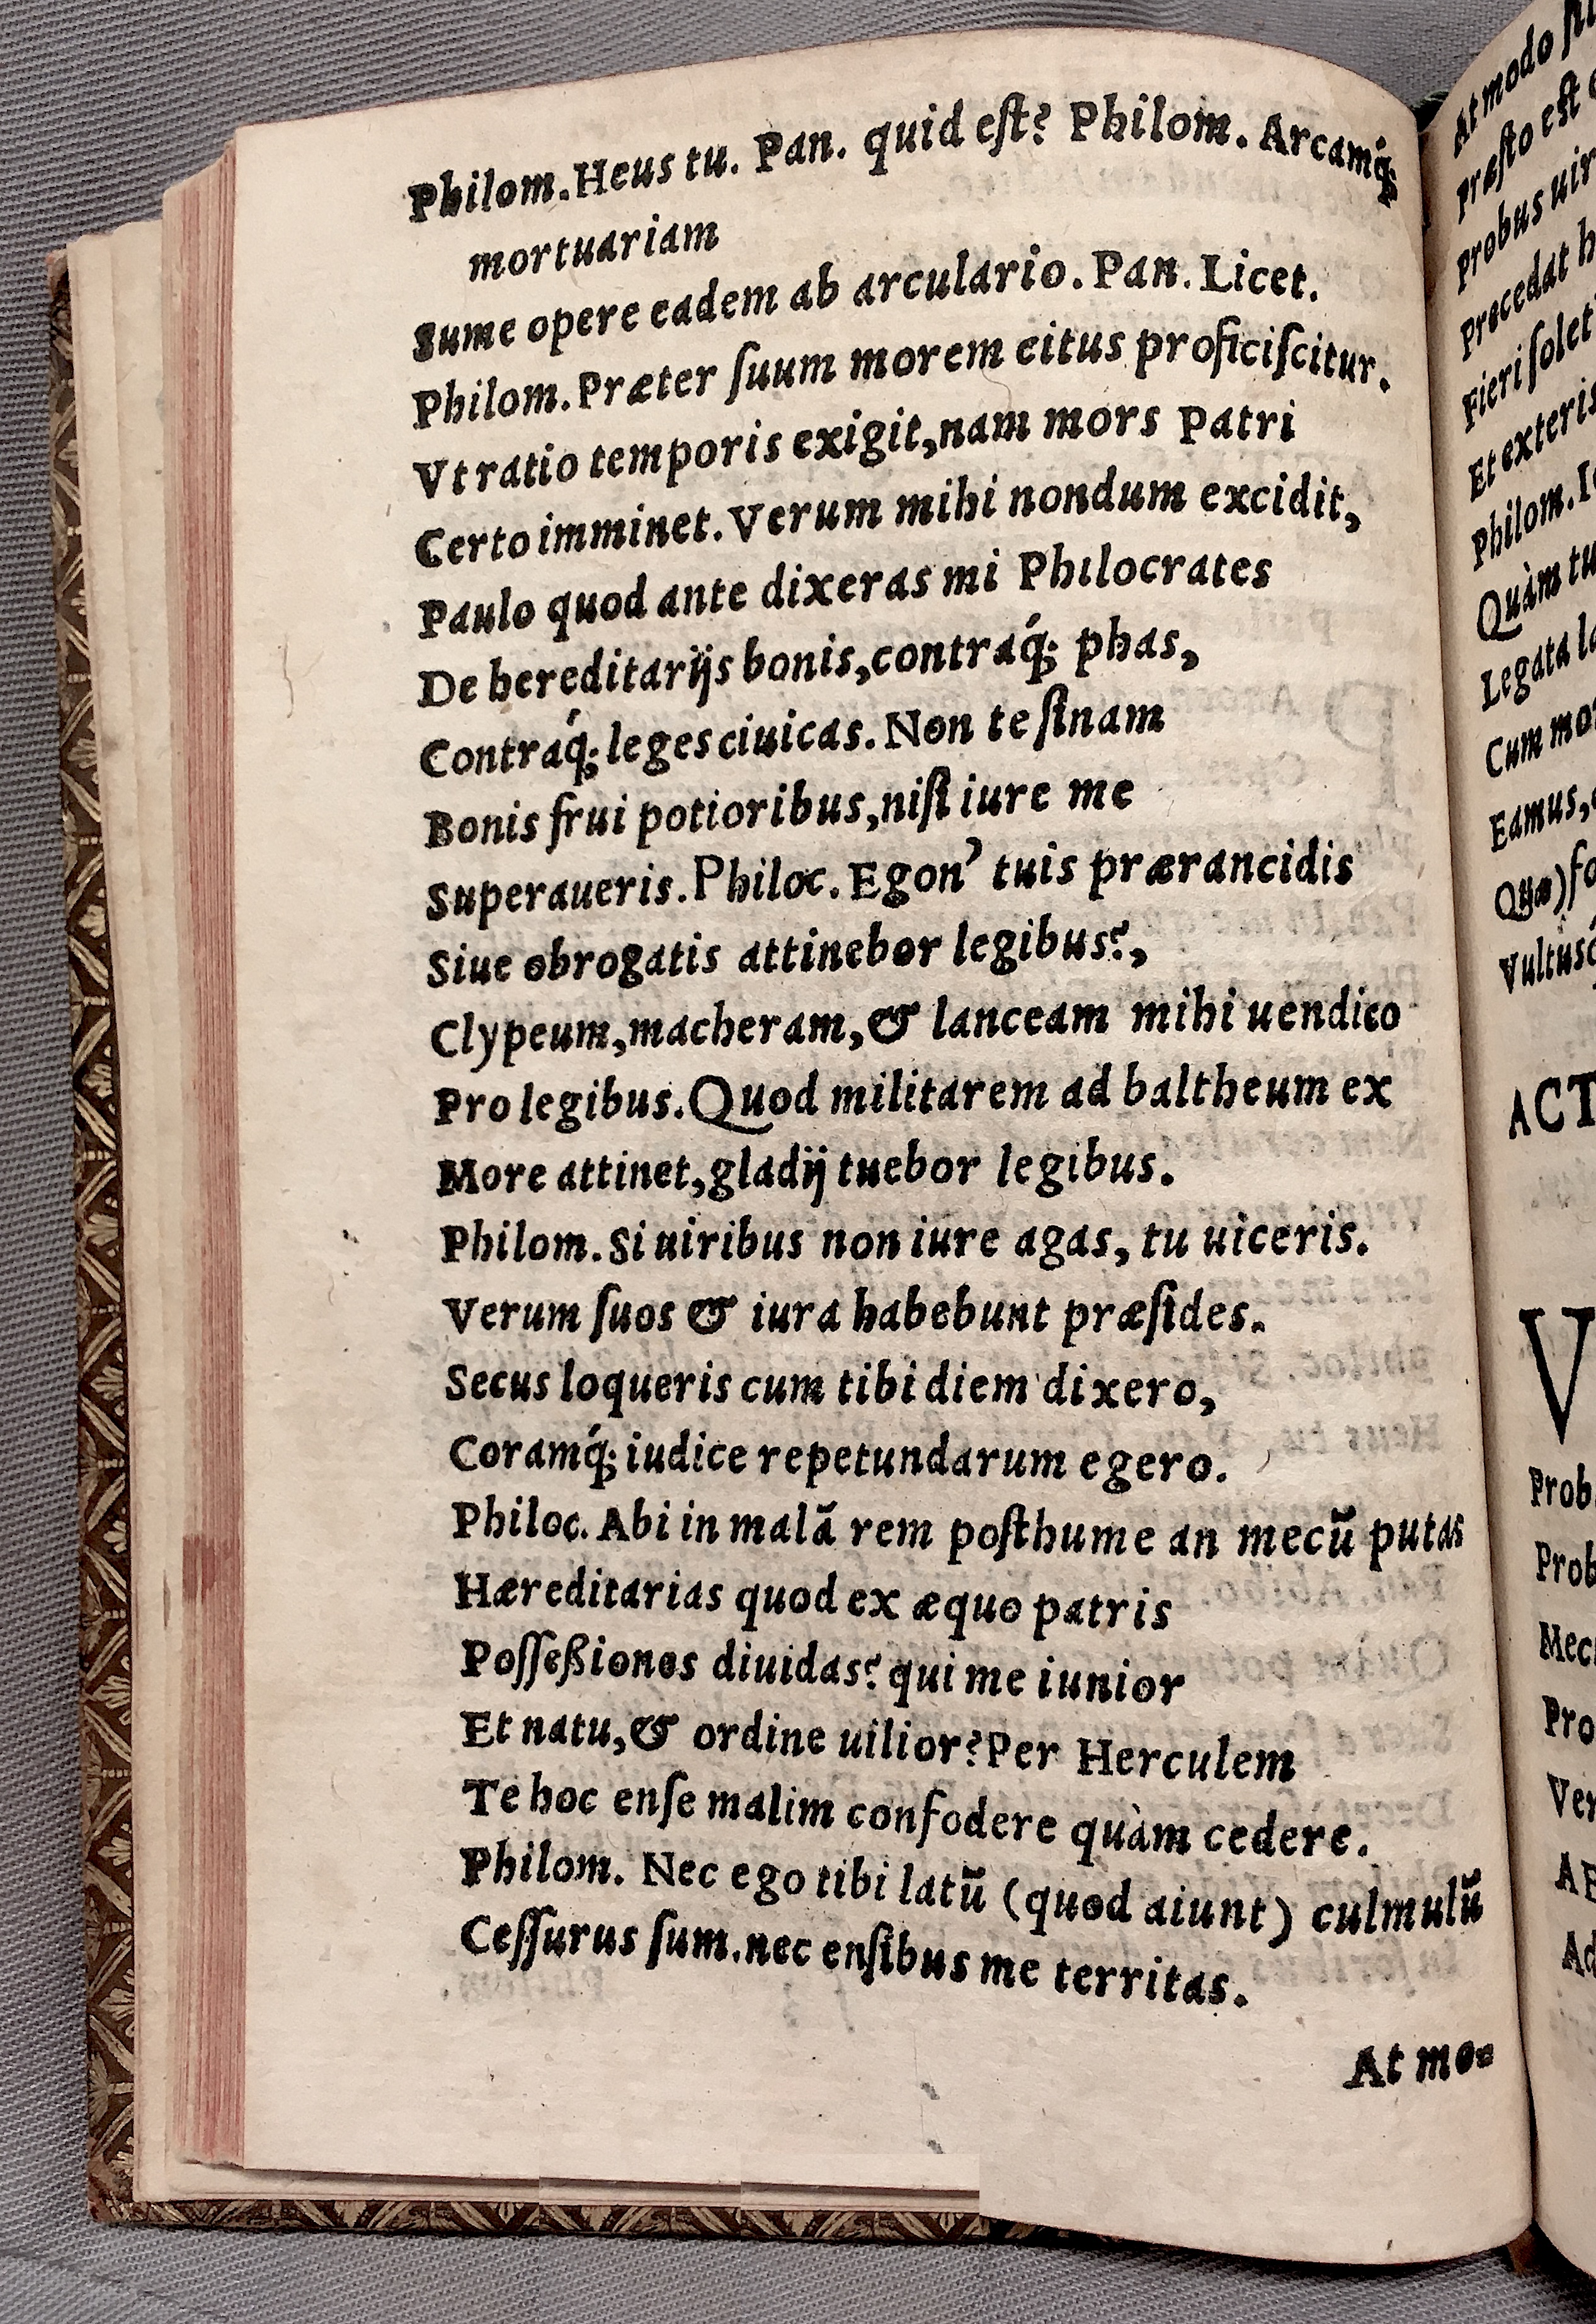 Philom. Heus tu. Pan. quid eſt? Philom. Arcamq́;
mortuariam
Sume opere eadem ab arculario. Pan. Licet.
Philom. Præter ſuum morem citus proficiſcitur.
Vt ratio temporis exigit, nam mors Patri
Certo imminet. Verum mihi nondum excidit,
Paulo quod ante dixeras mi Philocrates
De hereditarijs bonis, contraq́; phas,
Contraq́; leges ciuicas. Non te ſinam
Bonis frui potioribus, niſi iure me
Superaueris. Philoc. Egon’ tuis prærancidis
Siue obrogatis attinebor legibus?,
Clypeum, macheram, & lanceam mihi uendico
Pro legibus. Quod militarem ad baltheum ex
More attinet, gladij tuebor legibus.
Philom. Si uiribus non iure agas, tu uiceris.
Verum ſuos & iura habebunt præſides.
Secus loqueris cum tibi diem dixero,
Coramq́; iudice repetundarum egero.
Philoc. Abi in malā rem poſthume an mecū putas
Hæreditarias quod ex æquo patris
Poſſeßiones diuidas? qui me iunior
Et natu, & ordine uilior? Per Herculem
Te hoc enſe malim confodere quàm cedere.
Philom. Nec ego tibi latū (quod aiunt) culmulū
Ceſſurus ſum. nec enſibus me territas.
At mo-
At modo
Præſto eſt
Probus uir
Præcedat h
Fieri ſolet
Et exteris
Philom. I
Quàm tu
Legata la
Cum mor
Eamus,
Quæ) fo
Vultusq́
ACT
V
Prob
Prob
Mec
Pro
Ver
A
Ad